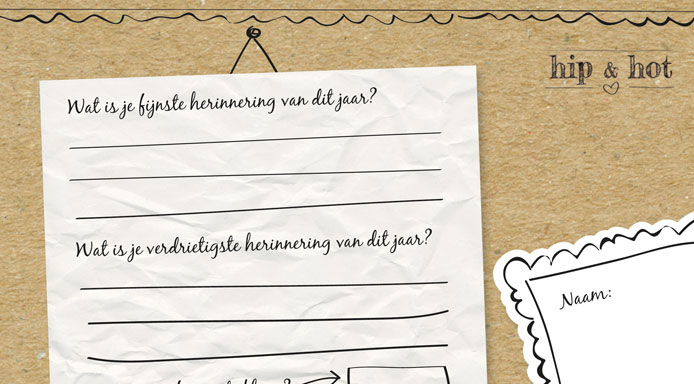 hip & hot
Wat is je fijnste herinnering van dit jaar?
Wat is je verdrietigste herinnering van dit jaar?
Naam: